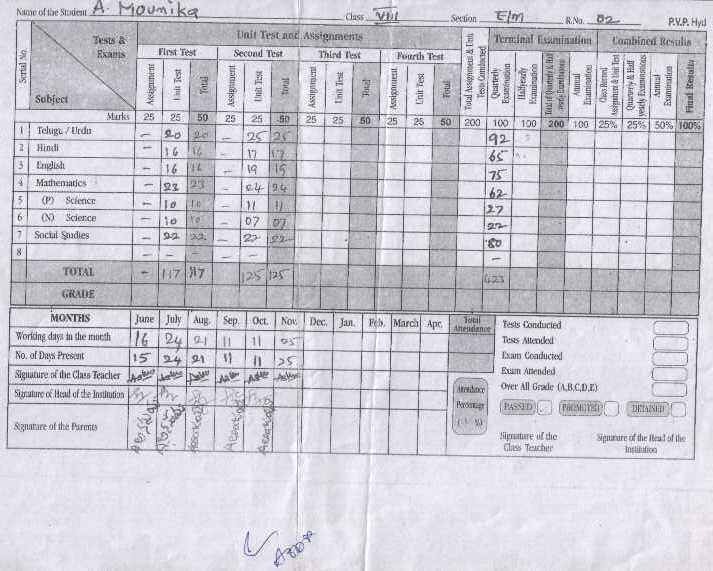 Name of the Student A. Mounika Class VIII Section E/M R.No. 02 P.V.P. Hyd
Serial No. Tests & Exams Subject Unit Test and Assignments Total Assignment & Unit Tests Conducted Terminal Examination Combined Results
First Test Second Test Third Test Fourth Test
Assignment Unit Test Total Assignment Unit Test Total Assignment Unit Test Total Assignment Unit Test Total Quarterly Examination Halfyearly Examination Total of Quarterly & Half yearly Examinations Annual Examination Class Record Assignment & Unit Test Quarterly & Half yearly Examinations Annual Examination Final Results
Marks 25 25 50 25 25 50 25 25 50 25 25 50 200 100 100 200 100 25% 25% 50% 100%
1 Telugu / Urdu - 20 20 - 25 25 92
2 Hindi - 16 16 - 17 17 65
3 English - 16 16 - 19 19 75
4 Mathematics - 23 23 - 24 24 62
5 (P) Science - 10 10 - 11 11 27
6 (N) Science - 10 10 - 07 07 22
7 Social Studies - 22 22 - 22 22 80
8 - - - - - -
TOTAL - 117 117 125 125 423
GRADE
MONTHS June July Aug. Sep. Oct. Nov. Dec. Jan. Feb. March Apr. Total Attendance
Working days in the month 16 24 21 11 11 25
No. of Days Present 15 24 21 11 11 25
Signature of the Class Teacher
Signature of Head of the Institution
Signature of the Parents
Attendance Percentage ( %)
Tests Conducted
Tests Attended
Exam Conducted
Exam Attended
Over All Grade (A,B,C,D,E)
PASSED PROMOTED DETAINED
Signature of the Class Teacher Signature of the Head of the Institution